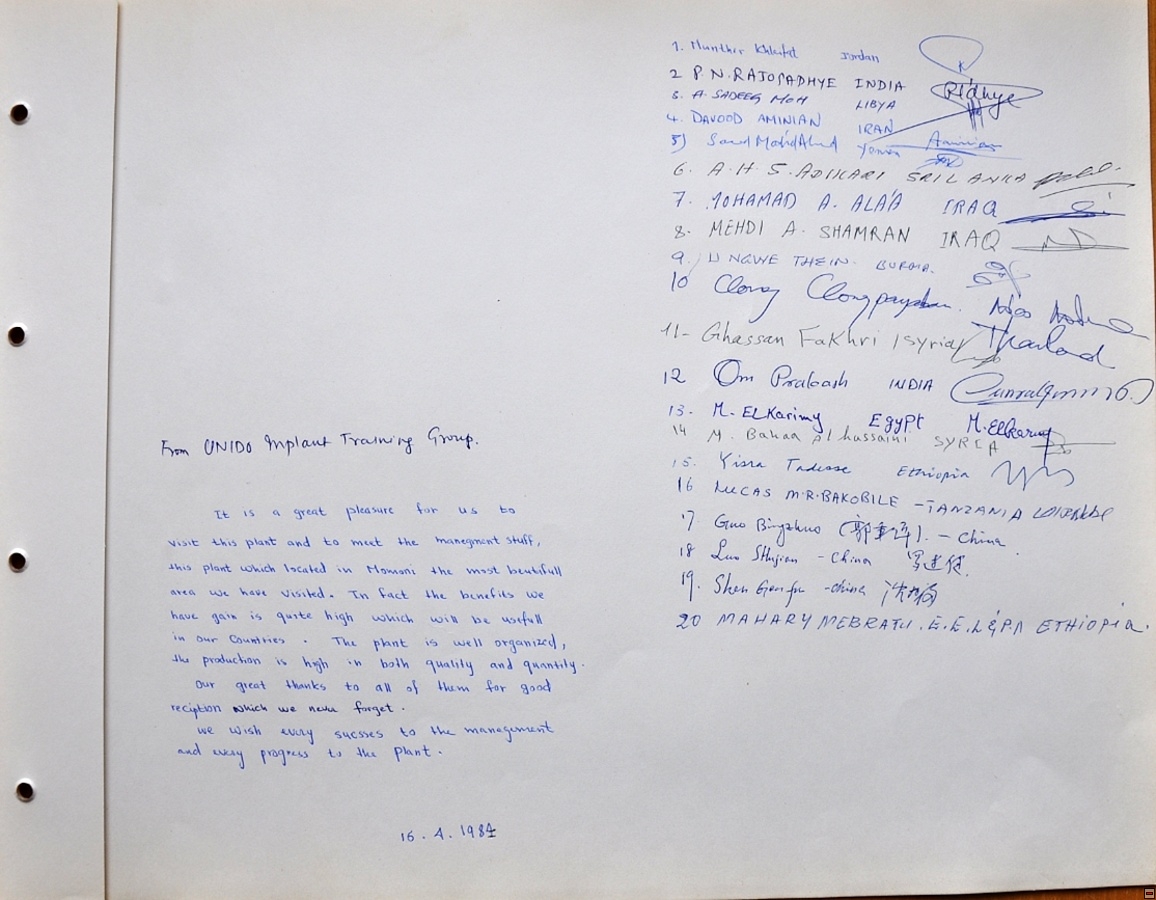 From UNIDO Inplant Training Group.
It is a great pleasure for us to
visit this plant and to meet the manegment stuff,
this plant which located in Momoni the most beutifull
area we have visited. In fact the benefits we
have gain is quite high which will be usefull
in our Countries . The plant is well organized,
the production is high in both quality and quantity.
Our great thanks to all of them for good
reciption which we never forget .
we wish every sucsses to the management
and every progress to the plant .
16 . 4 . 1984
1. Munthir Khleifat Jordan
2 P. N. RAJOPADHYE INDIA
3. A. SADEEG MOH LIBYA
4. DAVOOD AMINIAN IRAN Aminian
5) Yemen
6. A. H. S. ADIKARI SRI LANKA
7. MOHAMAD A. ALA'A IRAQ
8. MEHDI A. SHAMRAN IRAQ
9. U NGWE THEIN. BURMA.
10 Thailand
11- Ghassan Fakhri / Syria
12 Om Prakash INDIA
13. M. ELKarimy Egypt M. Elkarimy
14 M. Bahaa Al hussaini SYREA
15. Yisra Tadesse Ethiopia
16 LUCAS M.R. BAKOBILE - TANZANIA
17 Guo Bingzhuo - China
18 Luo Shujian - China
19. Shen Genfu - china
20 MAHARY MEBRATU. E.E.L&P.A ETHIOPIA.